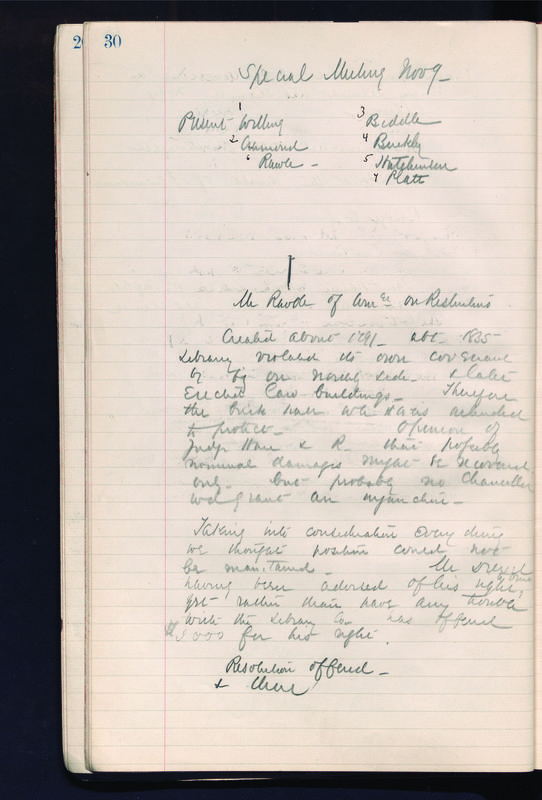 2
30
Special Meeting Nov 9
Present 1 Willing 3 Biddle
2 4
6 Rawle 5 Hutchinson
7 Platt
Mr Rawle of on Restrictions
Created about 1791 abt 1835
Library violated its own covenant
by on North side & later
Erected Law buildings Therefore
the brick was intended
to protect Opinion of
Judge Hare & R that possibly
nominal damages might be recovered
only but probably no Chancellor
would grant an injunction
Taking into consideration every thing
we thought position could not
be maintained Mr Drexel
having been advised of his rights,
yet rather than have any trouble
with the Library Co has offered
000 for his right.
Resolution offered
&